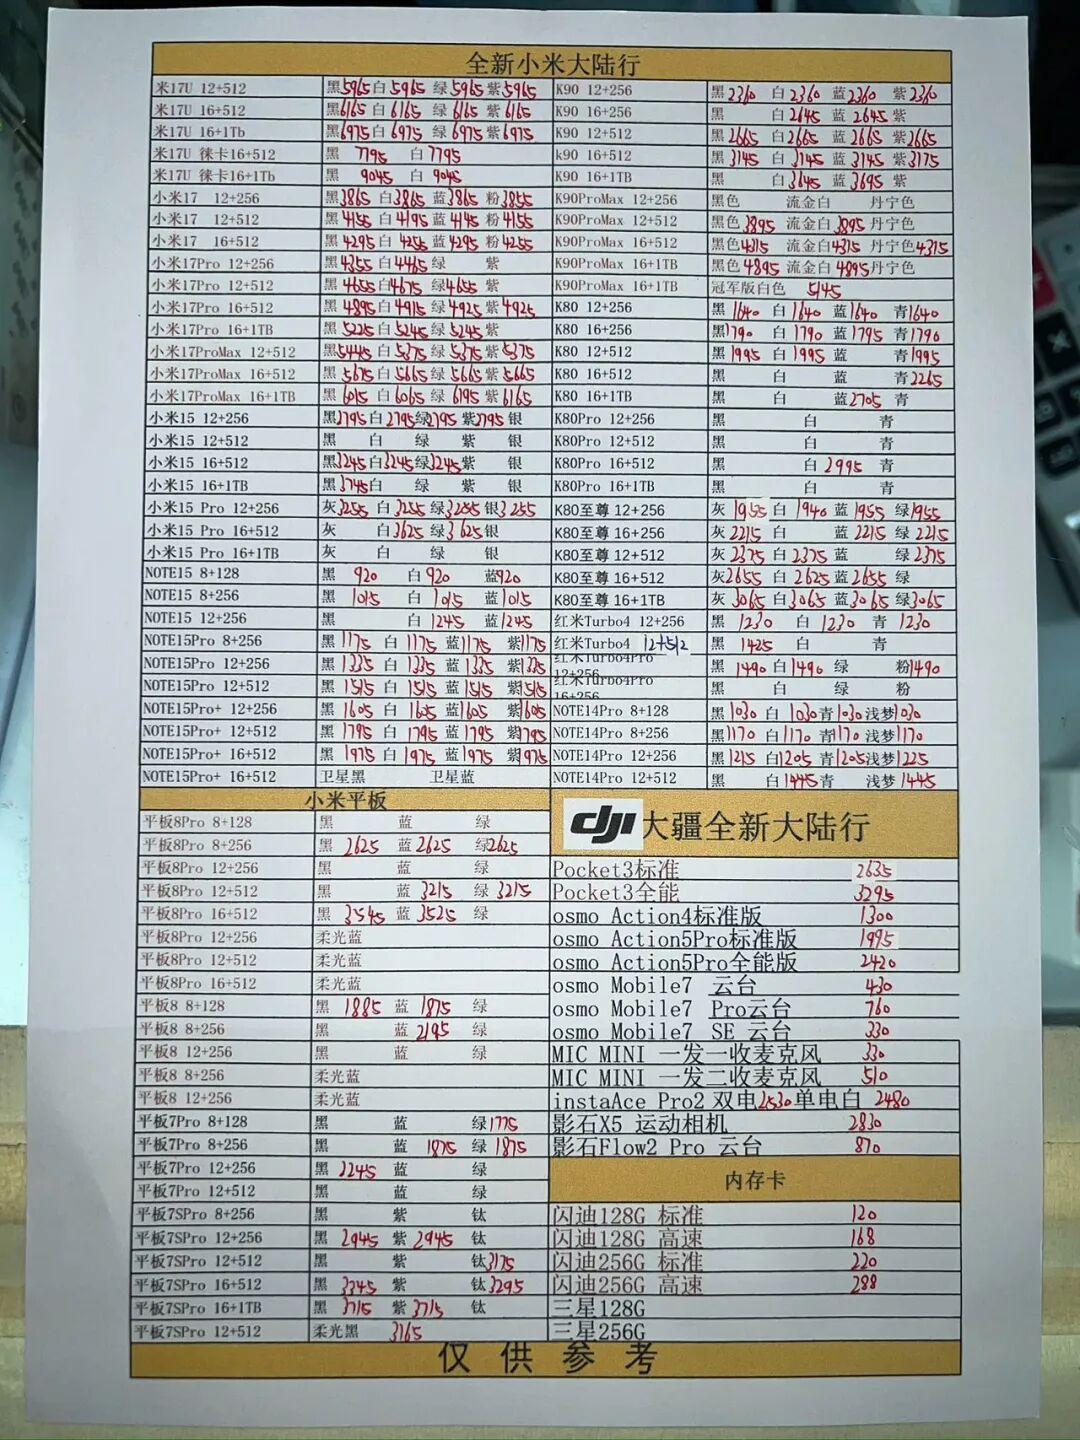 全新小米大陆行
米17U 12+512 黑5965 白5965 绿5965 紫5965
米17U 16+512 黑6165 白6165 绿6165 紫6165
米17U 16+1Tb 黑6975 白6975 绿6975 紫6975
米17U 徕卡16+512 黑 7795 白7795
米17U 徕卡16+1Tb 黑 9045 白 9045
小米17 12+256 黑3865 白3865 蓝3865 粉3855
小米17 12+512 黑4155 白4195 蓝4145 粉4155
小米17 16+512 黑4295 白4255 蓝4295 粉4255
小米17Pro 12+256 黑4355 白4465 绿 紫
小米17Pro 12+512 黑4655 白4675 绿4655 紫
小米17Pro 16+512 黑4895 白4915 绿4925 紫4925
小米17Pro 16+1TB 黑5225 白5245 绿5245 紫
小米17ProMax 12+512 黑5445 白5375 绿5375 紫5375
小米17ProMax 16+512 黑5675 白5665 绿5665 紫5665
小米17ProMax 16+1TB 黑6015 白6065 绿6195 紫6165
小米15 12+256 黑2795 白2795 绿2795 紫2795 银
小米15 12+512 黑 白 绿 紫 银
小米15 16+512 黑3245 白3245 绿3245 紫 银
小米15 16+1TB 黑3745 白 绿 紫 银
小米15 Pro 12+256 灰3255 白3255 绿3255 银3255
小米15 Pro 16+512 灰 白3625 绿3625 银
小米15 Pro 16+1TB 灰 白 绿 银
NOTE15 8+128 黑 920 白920 蓝920
NOTE15 8+256 黑 1015 白 1015 蓝1015
NOTE15 12+256 黑 白 1245 蓝1245
NOTE15Pro 8+256 黑1175 白 1175 蓝1175 紫1175
NOTE15Pro 12+256 黑1335 白 1335 蓝1335 紫1335
NOTE15Pro 12+512 黑1515 白 1515 蓝1515 紫1515
NOTE15Pro+ 12+256 黑1605 白 1605 蓝1605 紫1605
NOTE15Pro+ 12+512 黑1795 白 1795 蓝1795 紫1795
NOTE15Pro+ 16+512 黑1975 白 1975 蓝1975 紫1975
NOTE15Pro+ 16+512 卫星黑 卫星蓝
K90 12+256 黑2360 白2360 蓝2360 紫2360
K90 16+256 黑 白2645 蓝2645 紫
K90 12+512 黑2665 白2665 蓝2665 紫2665
k90 16+512 黑3145 白3145 蓝3145 紫3175
K90 16+1TB 黑 白3645 蓝3695 紫
K90ProMax 12+256 黑色 流金白 丹宁色
K90ProMax 12+512 黑色3895 流金白3895 丹宁色
K90ProMax 16+512 黑色4315 流金白4315 丹宁色4315
K90ProMax 16+1TB 黑色4895 流金白4895 丹宁色
K90ProMax 16+1TB 冠军版白色 5145
K80 12+256 黑 1640 白1640 蓝1640 青1640
K80 16+256 黑1790 白 1790 蓝1795 青1790
K80 12+512 黑1995 白1995 蓝 青1995
K80 16+512 黑 白 蓝 青2265
K80 16+1TB 黑 白 蓝2705 青
K80Pro 12+256 黑 白 青
K80Pro 12+512 黑 白 青
K80Pro 16+512 黑 白 2995 青
K80Pro 16+1TB 黑 白 青
K80至尊 12+256 灰 1955 白 1940 蓝1955 绿1955
K80至尊 16+256 灰 2215 白 蓝 2215 绿 2215
K80至尊 12+512 灰 2375 白 2375 蓝 绿2375
K80至尊 16+512 灰2655 白 2625 蓝2655 绿
K80至尊 16+1TB 灰 3065 白3065 蓝3065 绿3065
红米Turbo4 12+256 黑 1230 白 1230 青 1230
红米Turbo4 12+512 黑 1425 白 青
红米Turbo4Pro 12+256 黑 1490 白1490 绿 粉1490
红米Turbo4Pro 16+256 黑 白 绿 粉
NOTE14Pro 8+128 黑1030 白 1030 青1030 浅梦1030
NOTE14Pro 8+256 黑1170 白1170 青1170 浅梦1170
NOTE14Pro 12+256 黑1215 白1205 青1205 浅梦1225
NOTE14Pro 12+512 黑 白1445 青 浅梦1445
小米平板
平板8Pro 8+128 黑 蓝 绿
平板8Pro 8+256 黑 2625 蓝2625 绿2625
平板8Pro 12+256 黑 蓝 绿
平板8Pro 12+512 黑 蓝3215 绿 3215
平板8Pro 16+512 黑 3545 蓝 3525 绿
平板8Pro 12+256 柔光蓝
平板8Pro 12+512 柔光蓝
平板8Pro 16+512 柔光蓝
平板8 8+128 黑 1885 蓝 1875 绿
平板8 8+256 黑 蓝2195 绿
平板8 12+256 黑 蓝 绿
平板8 8+256 柔光蓝
平板8 12+256 柔光蓝
平板7Pro 8+128 黑 蓝 绿1775
平板7Pro 8+256 黑 蓝 1875 绿 1875
平板7Pro 12+256 黑 2245 蓝 绿
平板7Pro 12+512 黑 蓝 绿
平板7SPro 8+256 黑 紫 钛
平板7SPro 12+256 黑 2945 紫 2945 钛
平板7SPro 12+512 黑 紫 钛3175
平板7SPro 16+512 黑 3345 紫 钛3295
平板7SPro 16+1TB 黑 3715 紫3715 钛
平板7SPro 12+512 柔光黑 3165
dji大疆全新大陆行
Pocket3标准 2635
Pocket3全能 3295
osmo Action4标准版 1300
osmo Action5Pro标准版 1995
osmo Action5Pro全能版 2420
osmo Mobile7 云台 430
osmo Mobile7 Pro云台 760
osmo Mobile7 SE 云台 330
MIC MINI 一发一收麦克风 330
MIC MINI 一发二收麦克风 510
instaAce Pro2 双电2530单电白 2480
影石X5 运动相机 2830
影石Flow2 Pro 云台 870
内存卡
闪迪128G 标准 120
闪迪128G 高速 168
闪迪256G 标准 220
闪迪256G 高速 288
三星128G
三星256G
仅供参考